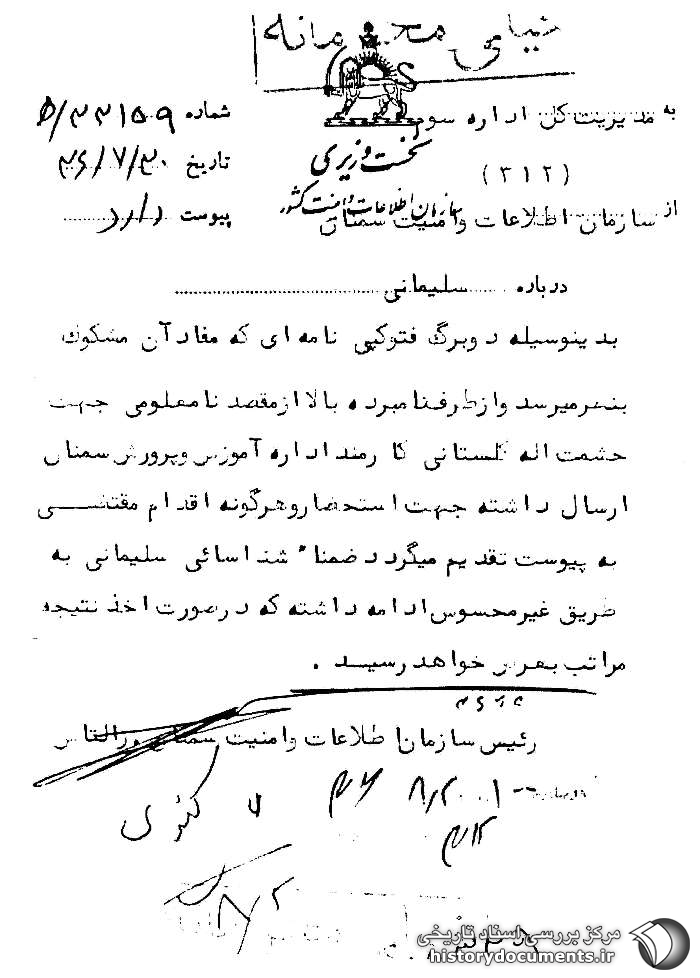 خیلی محرمانه
به مدیریت کل اداره سوم
شماره ۵/۲۲۱۵۹
نخست وزیری
(۳۱۲)
تاریخ ۴۶/۷/۳۰
سازمان اطلاعات و امنیت کشور
از سازمان اطلاعات وامنیت سمنان
پیوست دارد
درباره سلیمانی
بدینوسیله دوبرگ فتوکپی نامه ای که مفادآن مشکوک
بنظرمیرسد وازطرف نامبرده بالا ازمقصد نامعلومی جهت
حشمت اله گلستانی کارمند اداره آموزش وپرورش سمنان
ارسال داشته جهت استحضاروهرگونه اقدام مقتضی
به پیوست تقدیم میگردد ضمنا" شناسائی سلیمانی به
طریق غیرمحسوس ادامه داشته که درصورت اخذ نتیجه
مراتب بعرض خواهد رسید .
رئیس سازمان اطلاعات وامنیت سمنان
مرکز بررسی اسناد تاریخی
historydocuments.ir